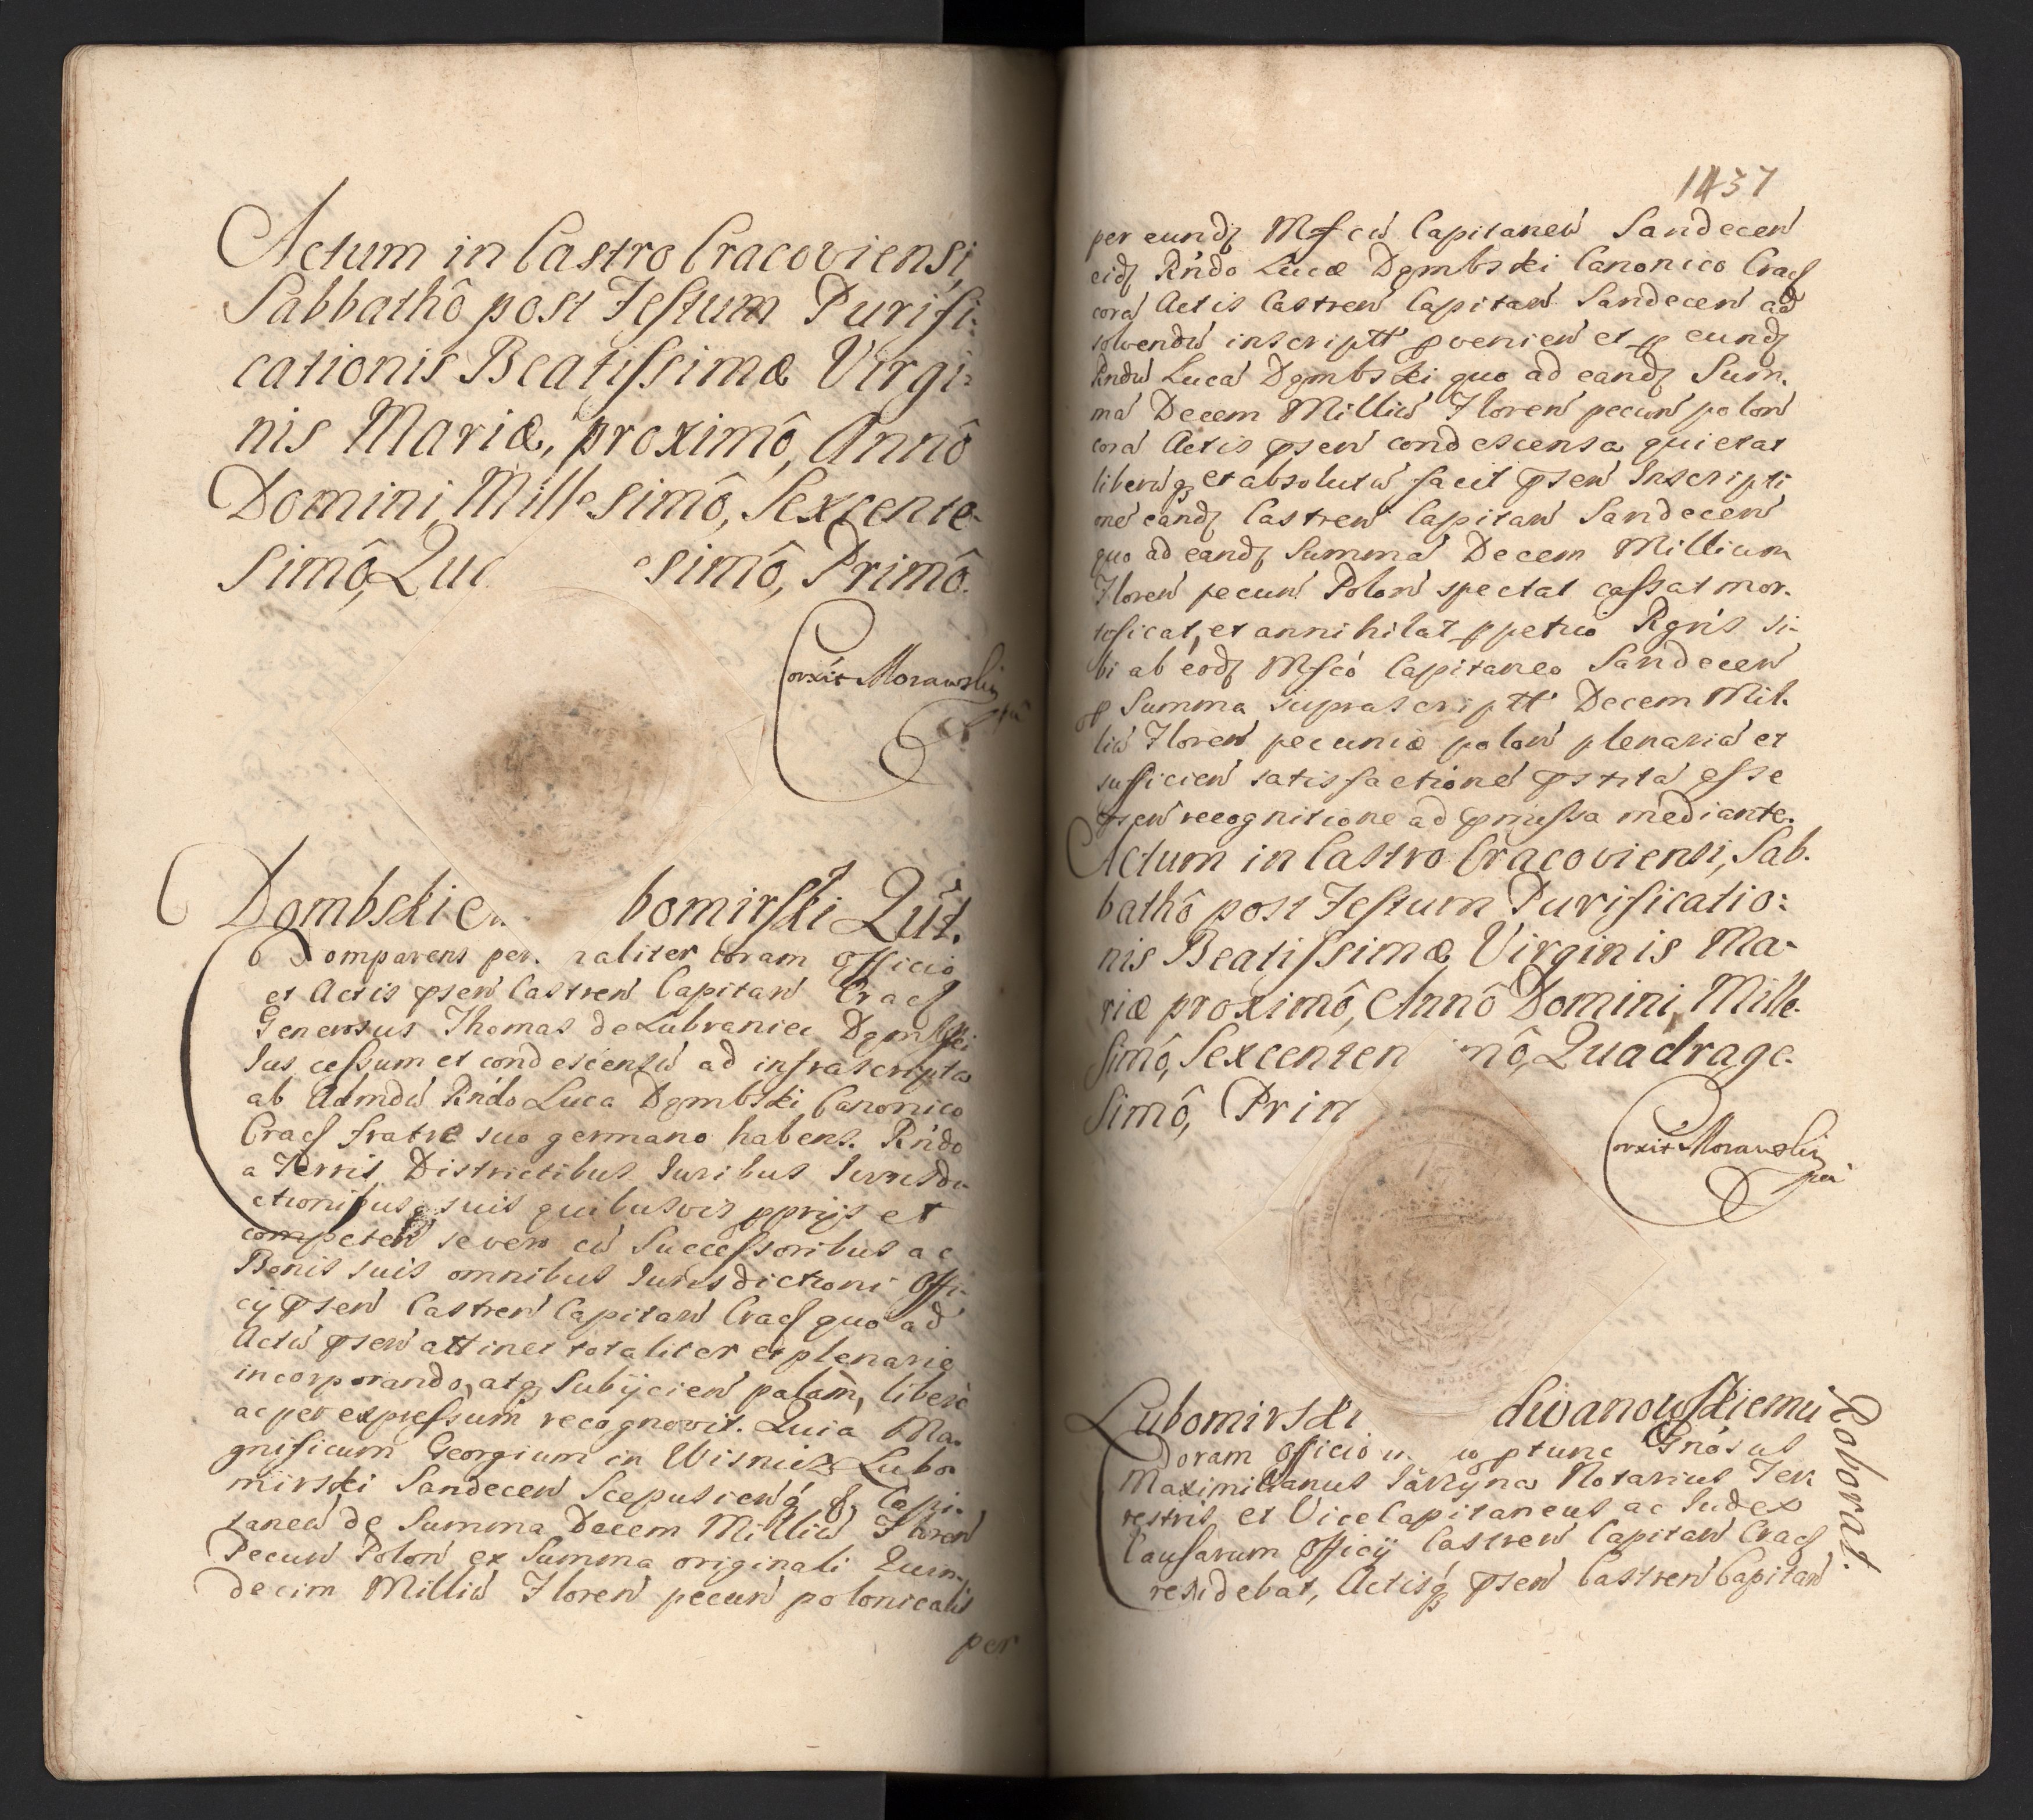 Actum in Castro Cracoviensi,
Sabbathô post Festum Purifi:
cationis Beatissimæ Virgi:
nis Mariæ, proximô, Annô
Domini, Millesimô, Sexcente-
simô, Qua esimô, Primô.
Corxit Morawski
Dąmbski e bomirski Quit.
Comparens per raliter coram Officio
et Actis psen Castren Capitan Crac
Generosus Thomas de Lubraniec Dąmbski
Ius cessum et condescensu ad infrascripta
ab Admdu Rndo Luca Dąmbski Canonico
Crac fratre suo germano habens. Rndo
a Terris Districtibus Iuribus Iurisdi
ctionibusq suis quibusvis pprijs et
competen se vero cu Successoribus ac
Bonis suis omnibus Iurisdictioni Offi-
cij psen Castren Capitan Crac quo ad
Actu psen attinet totaliter et plenarie
incorporando, atq Subijcien palam, libere
ac per expressum recognovit. Quia Ma-
gnificum Georgium in Wisnicz Lubo
mirski Sandecen Scepusienq Capi-
taneu de Summa Decem Milliu Floren
Pecun Polon ex Summa originali Quin-
decim Milliu Floren pecun polonicalis
per
1437
per eund Mfcu Capitaneu Sandecen
eid Rndo Lucæ Dąmbski Canonico Crac
cora Actis Castren Capitan Sandecen ad
solvendu inscriptt provenien et p eund
Rndu Luca Dąmbski quo ad eand Sum-
ma Decem Milliu Floren pecun polon
cora Actis psen condescensa quietat
liberuq et absolutu facit psen Inscripti
one eand Castren Capitan Sandecen
quo ad eand Summa Decem Millium
Floren pecun Polon spectat cassat mor-
tificat, et annihilat ppetuo Rgnis si-
bi ab eod Mfco Capitaneo Sandecen
p Summa suprascriptt Decem Mil-
liu Floren pecuniæ polon plenaria et
sufficien satisfactione pstita esse
psen recognitione ad pmissa mediante.
Actum in Castro Cracoviensi, Sab-
bathô post Festum Purificatio:
nis Beatissimæ Virginis Ma-
riæ proximô, Annô Domini, Mille-
simô, Sexcenten mô, Quadrage-
simô, Prim
Corxit Morawski
Lubomirski dwanowskiemu
Roborat.
Coram Officio ptunc Gnosus
Maximilianus Iarzyna Notarius Ter
restris et ViceCapitaneus ac Iudex
Causarum Officij Castren Capitan Crac
residebat, Actisq psen Castren Capitan